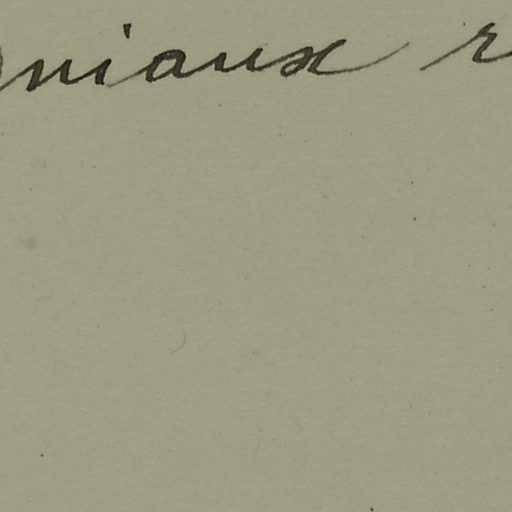 niaux r